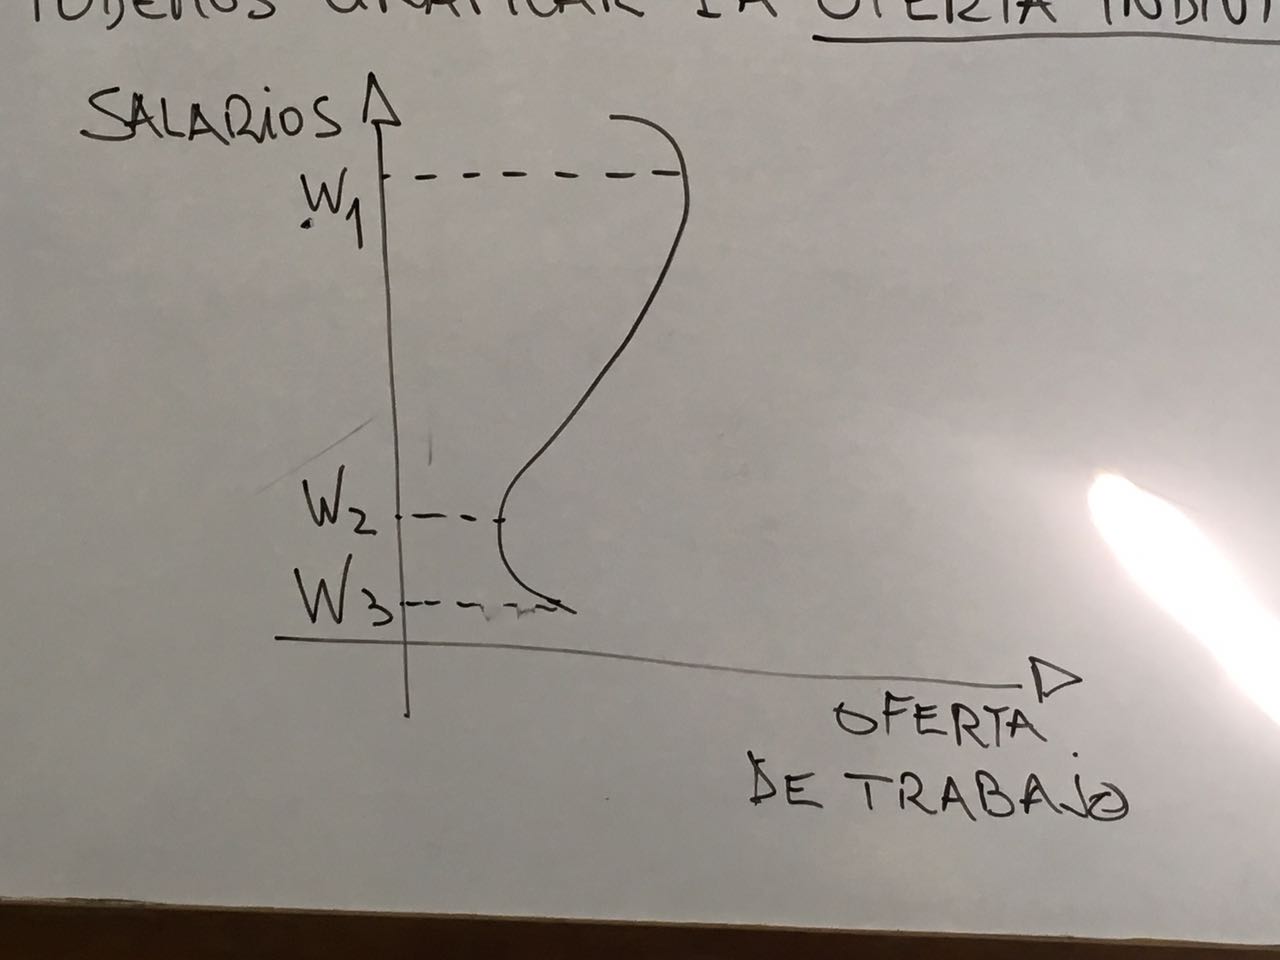 PODEMOS GRAFICAR LA OFERTA
SALARIOS
W1
W2
W3
OFERTA
DE TRABAJO